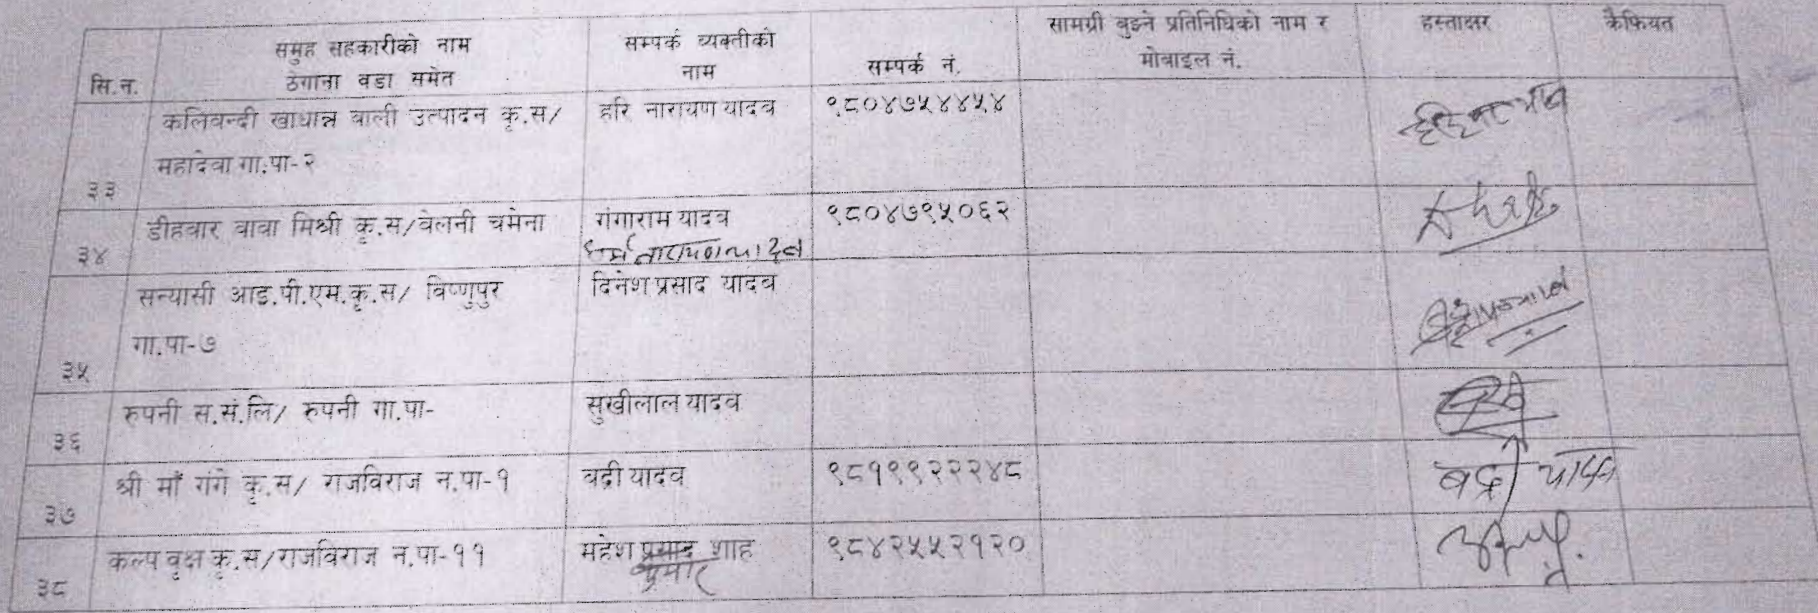 सि.न.	समुह सहकारीको नाम ठेगाना वडा समेत	सम्पर्क व्यक्तीको नाम	सम्पर्क नं.	सामग्री बुझ्ने प्रतिनिधिको नाम र मोबाइल नं.	हस्ताक्षर	कैफियत
३३	कलिवन्दी खाधान्न वाली उत्पादन कृ.स/ महादेवा गा.पा-२	हरि नारायण यादव	९८०४७५४४५४
३४	डीहवार वावा मिश्री कृ.स/वेलनी चमेना	गंगाराम यादव	९८०४७९५०६२
धर्म नारायण यादव
३५	सन्यासी आइ.पी.एम.कृ.स/ विष्णुपुर गा.पा-७	दिनेश प्रसाद यादव
३६	रुपनी स.सं.लि/ रुपनी गा.पा-	सुखीलाल यादव
३७	श्री माँ गंगे कृ.स/ राजविराज न.पा-१	वद्री यादव	९८१९९२२२४८	बद्री यादव
३८	कल्प वृक्ष कृ.स/राजविराज न.पा-११	महेश प्रसाद शाह	९८४२५५२१२०